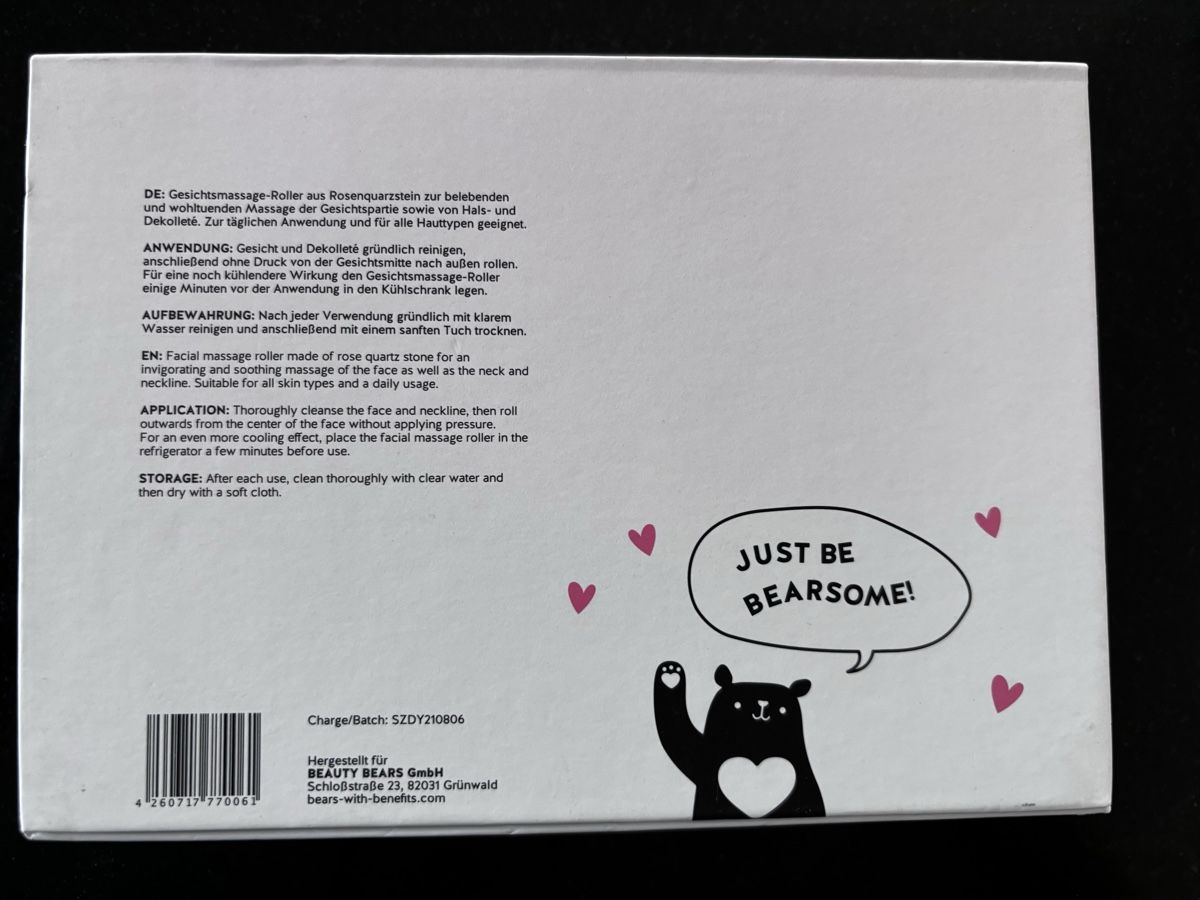 DE: Gesichtsmassage-Roller aus Rosenquarzstein zur belebenden
und wohltuenden Massage der Gesichtspartie sowie von Hals- und
Dekolleté. Zur täglichen Anwendung und für alle Hauttypen geeignet.
ANWENDUNG: Gesicht und Dekolleté gründlich reinigen,
anschließend ohne Druck von der Gesichtsmitte nach außen rollen.
Für eine noch kühlendere Wirkung den Gesichtsmassage-Roller
einige Minuten vor der Anwendung in den Kühlschrank legen.
AUFBEWAHRUNG: Nach jeder Verwendung gründlich mit klarem
Wasser reinigen und anschließend mit einem sanften Tuch trocknen.
EN: Facial massage roller made of rose quartz stone for an
invigorating and soothing massage of the face as well as the neck and
neckline. Suitable for all skin types and a daily usage.
APPLICATION: Thoroughly cleanse the face and neckline, then roll
outwards from the center of the face without applying pressure.
For an even more cooling effect, place the facial massage roller in the
refrigerator a few minutes before use.
STORAGE: After each use, clean thoroughly with clear water and
then dry with a soft cloth.
JUST BE
BEARSOME!
4 260717 770061
Charge/Batch: SZDY210806
Hergestellt für
BEAUTY BEARS GmbH
Schloßstraße 23, 82031 Grünwald
bears-with-benefits.com